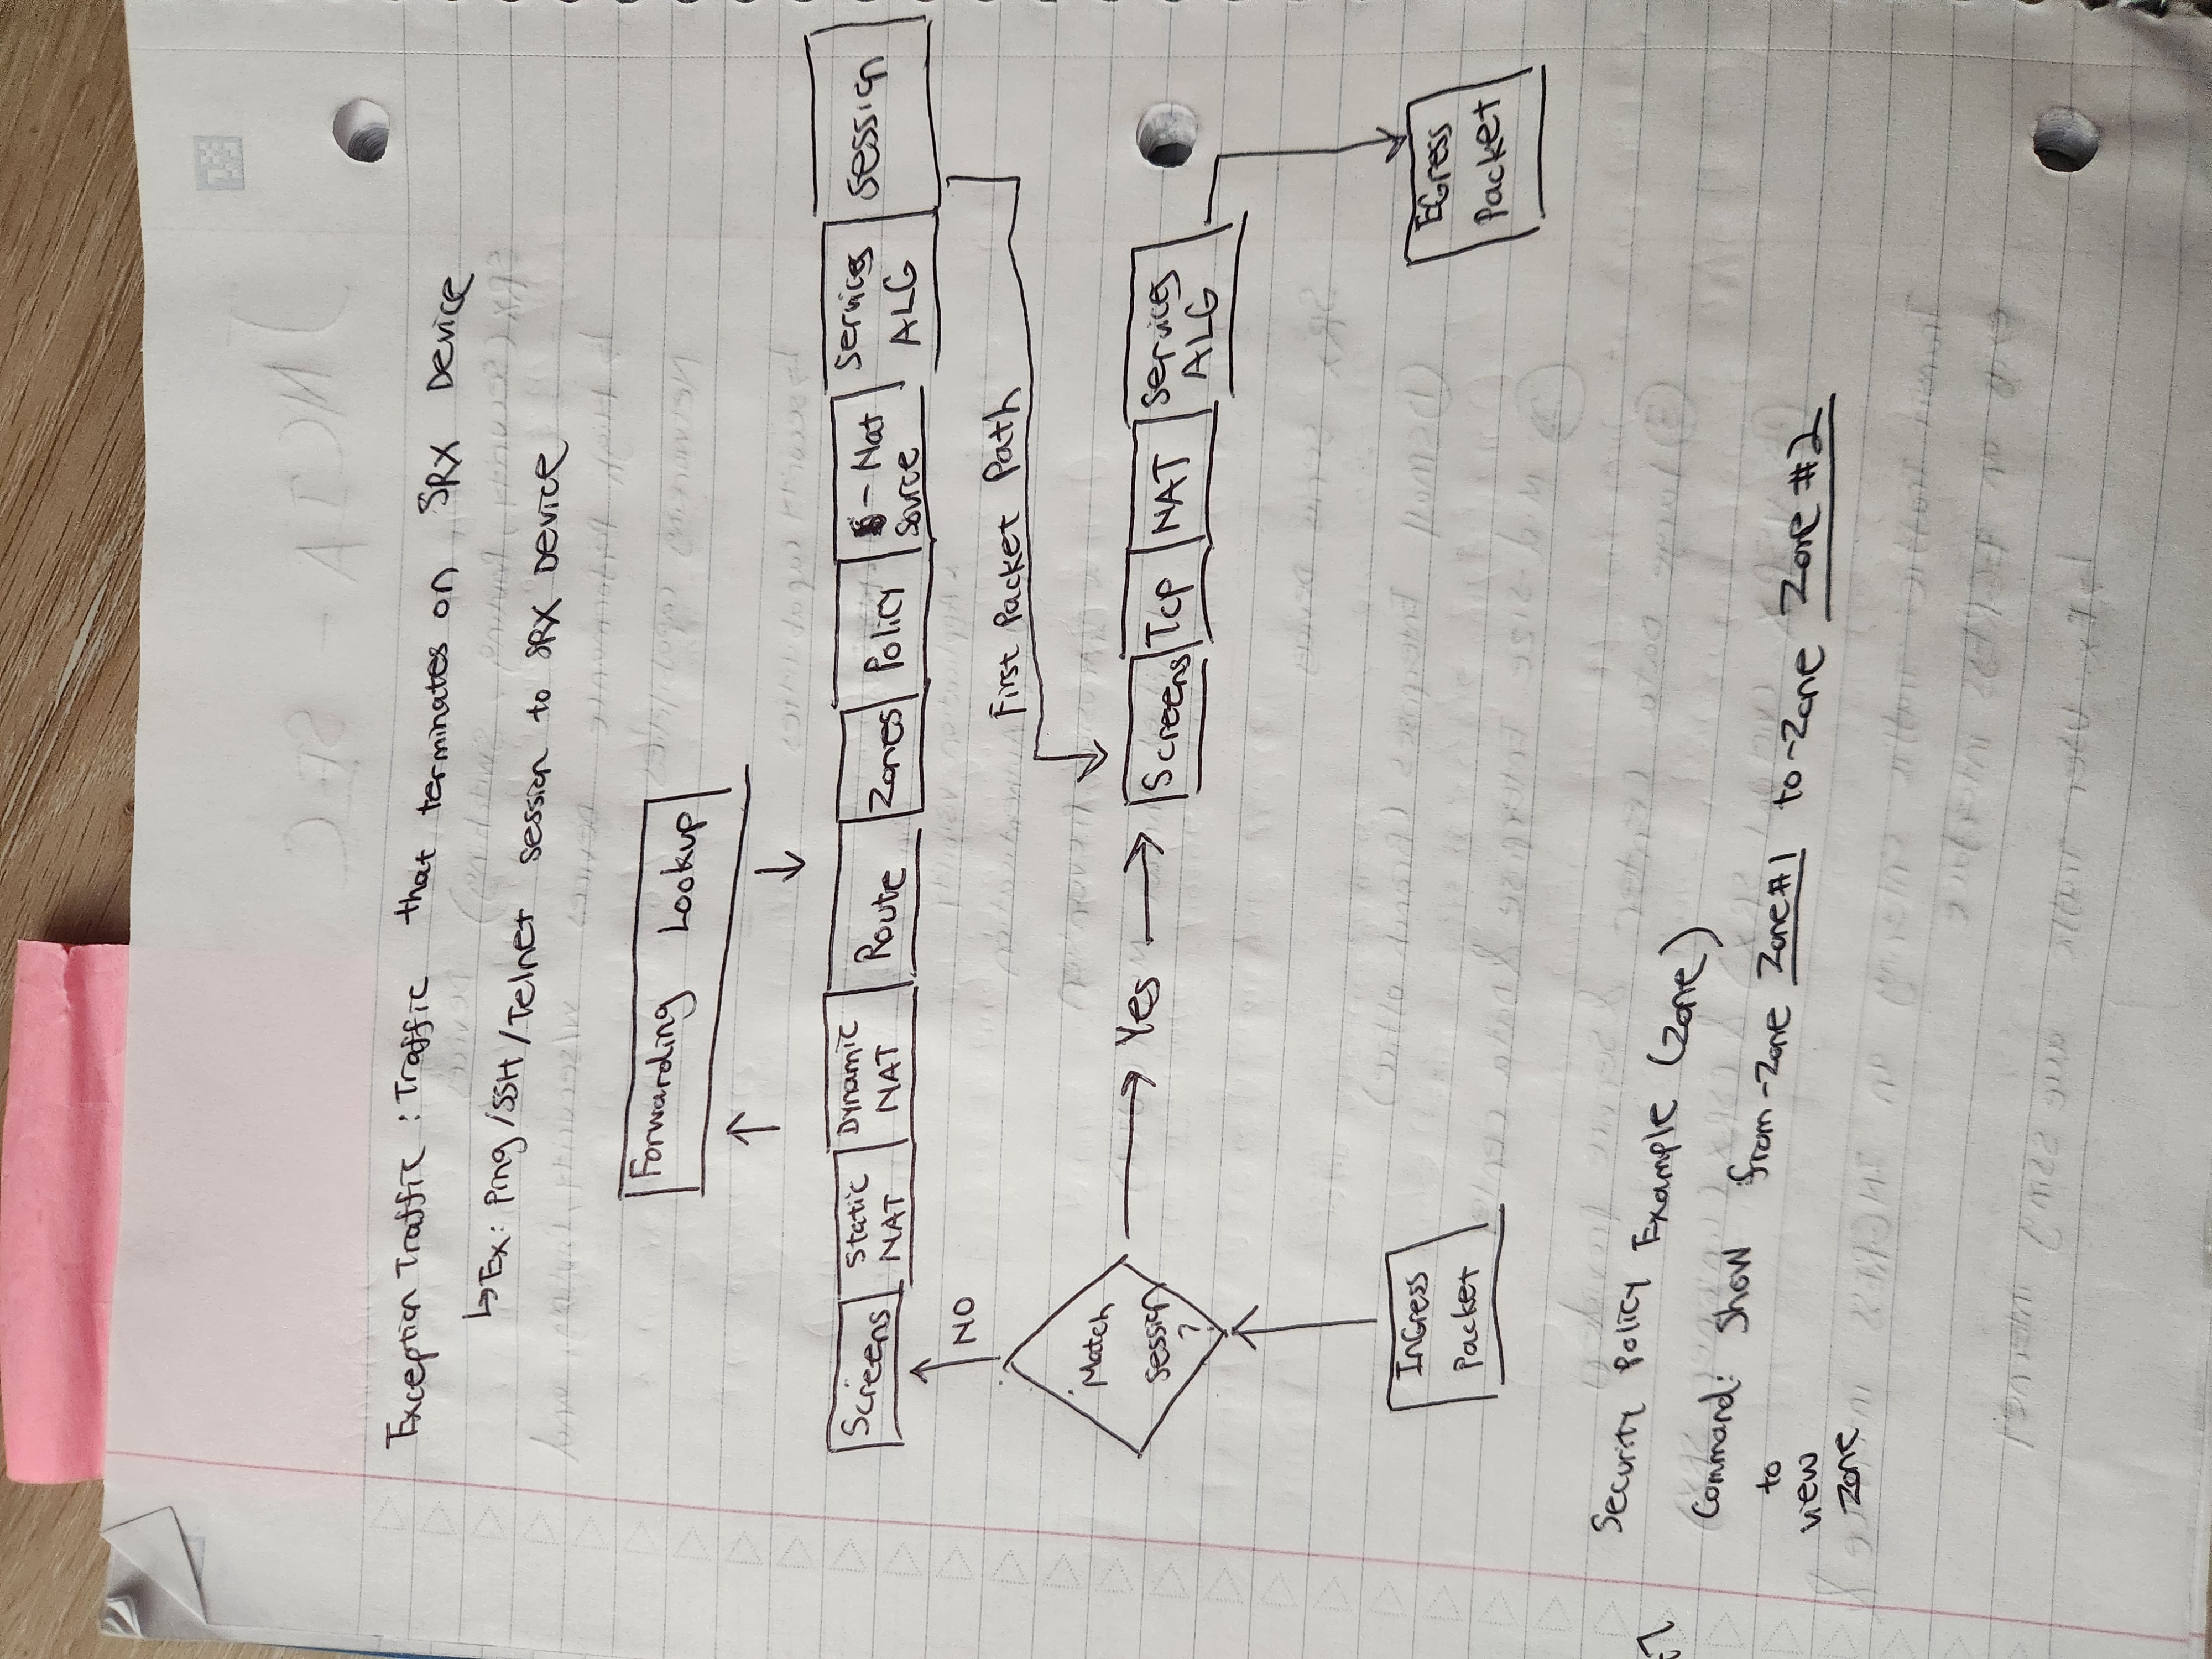 JNCIA - SEC
Exception Traffic : Traffic that terminates on SRX Device
↳ Ex: Ping /SSH /Telnet session to SRX Device
Forwarding Lookup
Screens
Static NAT
Dynamic NAT
Route
Zones
Policy
- Nat Source
Services ALG
Session
NO
First Packet Path
Match
session
?
Yes
Screens
TCP
NAT
Services ALG
InGress
Packet
EGress
Packet
Security Policy Example (Zone)
Command: Show from-Zone Zone #1 to-Zone Zone #2
to
view
zone